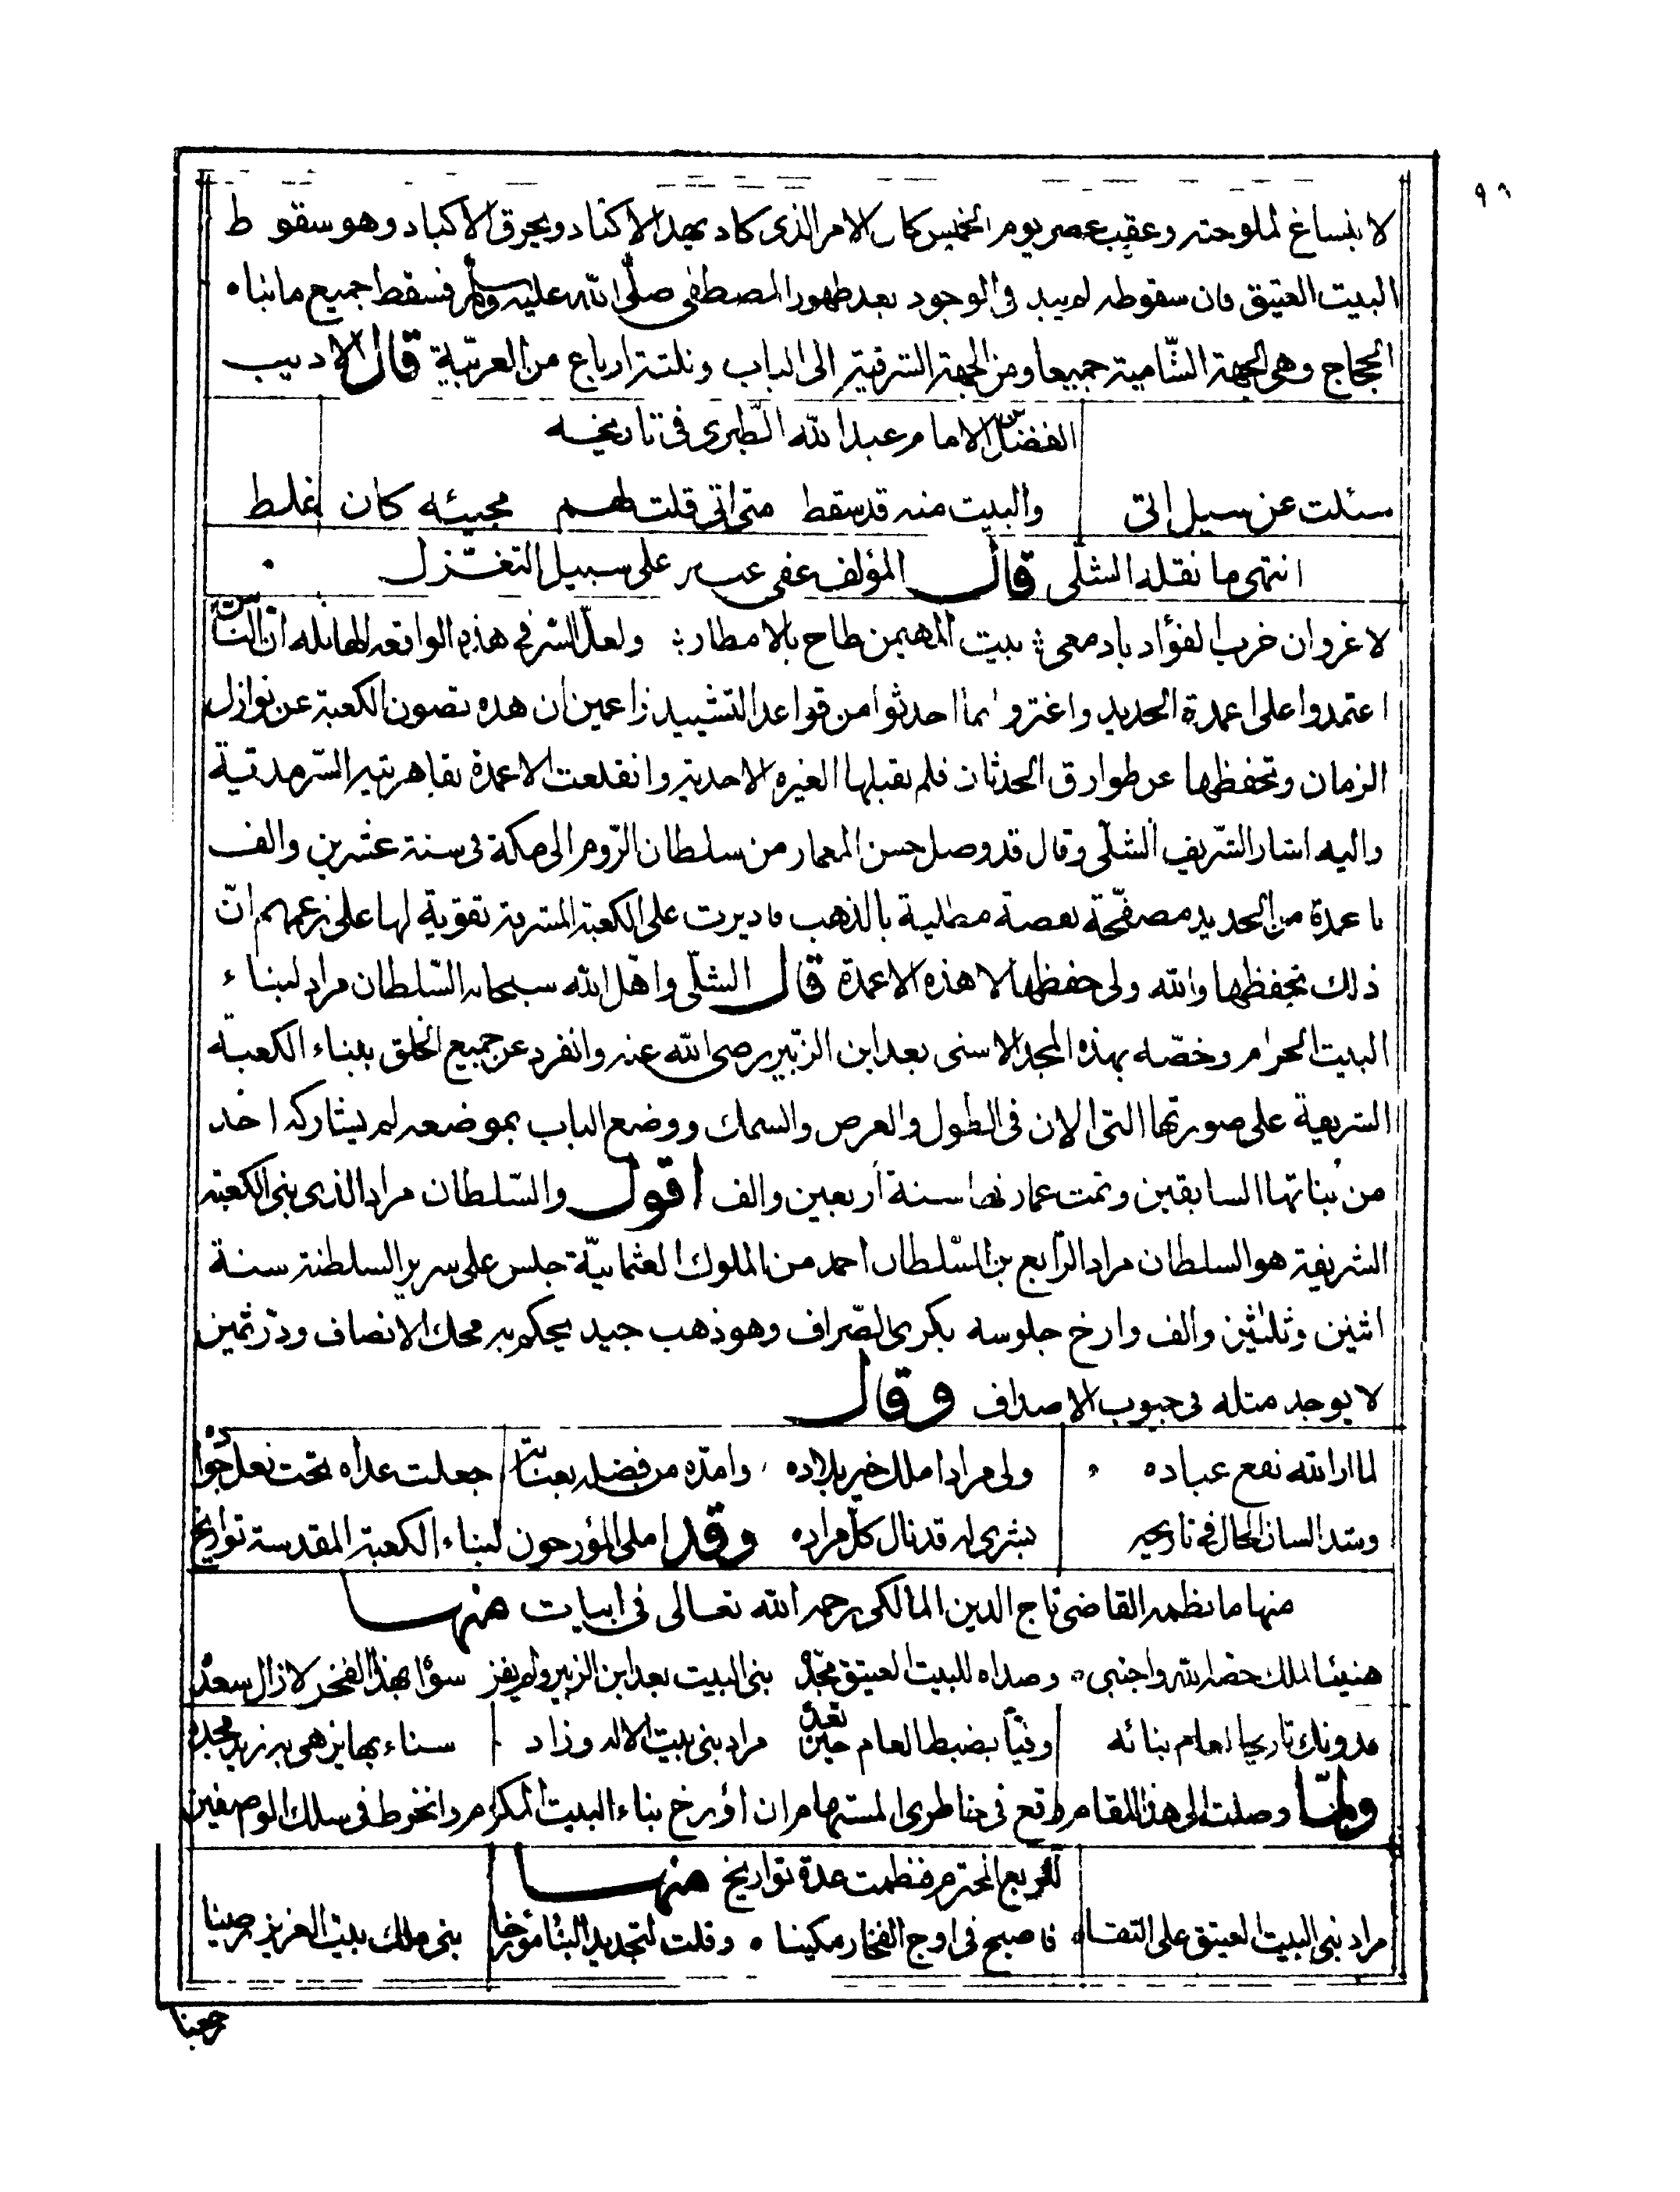 ٩٦
لا ينساغ لملوحته وعقيب عصر يوم الخميس كان الامر الذى كاد يهد الاكتاد ويحرق الاكباد وهو سقوط
البيت العتيق فان سقوطه لم يبد فى الوجود بعد ظهور المصطفى صلى الله عليه وسلم فسقط جميع ما بناه
الحجاج وهى الجهة الشّامية جميعا ومن الجهة الشرقية الى الباب وثلثة ارباع من الغربيّة قال الاديب
الفضل الامام عبد الله الطبرى فى تاريخه
سئلت عن سيل اتى والبيت منه قد سقط متى اتى قلت لهم مجيئه كان غلط
انتهى ما نقله الشلّى قال المؤلف عفى عنه على سبيل التغزل
لا غرو ان خرب الفؤاد بادمعى بيت المهيمن طاح بالامطار ولعل السر فى هذه الواقعه الهايله انّ الناس
اعتمدوا على اعمدة الحديد واغتروا بما احدثوا من قواعد التشييد زاعمين ان هذه تصون الكعبة عن نوازل
الزمان وتحفظها عن طوارق الحدثان فلم يقبلها الغيره الاحدية وانقلعت الاعمدة بقاهريته السّرمدية
واليه اشار الشّريف الشلّى وقال قد وصل حسن المعمار من سلطان الرّوم الى مكة فى سنة عشرين والف
باعمدة من الحديد مصفّحة بفضة مطلية بالذهب فاديرت على الكعبة المشرفة تقوية لها على زعمهم انّ
ذلك تحفظها والله ولى حفظها لا هذه الاعمدة قال الشلّى واهّل الله سبحانه السّلطان مراد لبناء
البيت الحرام وخصّه بهذه المجد الاسنى بعد ابن الزبير رضى الله عنه وانفرد عن جميع الخلق ببناء الكعبة
الشريفة على صورتها التى الان فى الطول والعرض والسمك ووضع الباب بموضعه لم يشاركه احد
من بناتها السابقين وتمت عمارتها سنة أربعين والف اقول والسّلطان مراد الذى بنى الكعبة
الشريفة هو السلطان مراد الرّابع بن السّلطان احمد من الملوك العثمانيّة جلس على سرير السلطنة سنة
اثنين وثلثين والف وارخ جلوسه بكرى الصّراف وهو ذهب جيد يحكم به محك الانصاف ودرّ ثمين
لا يوجد مثله فى جيوب الاصداف وقال
لما اراد الله نفع عباده ولى مراد املك خير بلاده وامدّه من فضله بعناية جعلت عداه تحت نعل جواده
وشد السان الحال فى تاريخه بشرى له قد نال كلّ مراده وقد املى المؤرخون لبناء الكعبة المقدسة تواريخ
منها ما نظمه القاضى تاج الدين المالكى رحمه الله تعالى فى ابيات منها
هنيئا لملك خصه الله واجتبى وصداه للبيت العتيق مجدّد بنى البيت بعد ابن الزبير ولم يفز سواه بهذا الفخر لازال سعده
فدونك تاريخا لعام بنائه وفيا بضبط العام حين تعدّه مراد بنى بيت الاله وزاد سناء بهايزهى به زيد مجده
ولمّا وصلت الى هذا المقام وقع فى خاطرى المستهام ان اؤرخ بناء البيت المكرّم وانخرط فى سلك الوصفين
لفريع المحترم فنظمت عدة تواريخ منها
مراد بنى البيت العتيق على التقا فاصبح فى اوج الفخار مكينا وقلت لتجديد البنا مؤرخا بنى ملك بيت العزيز رصينا